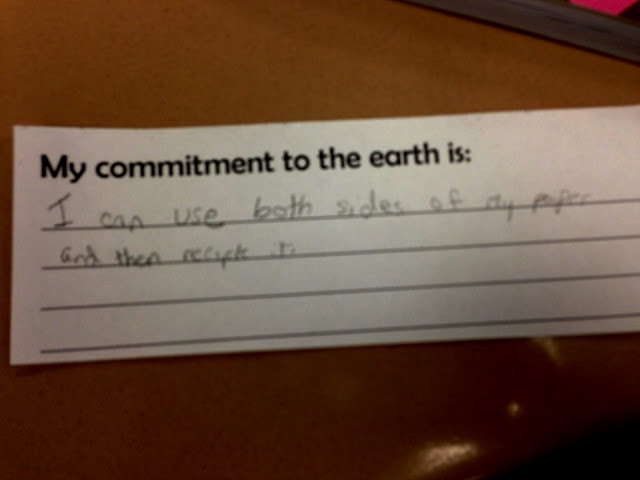 My commitment to the earth is:
I can use both sides of my paper
and then recycle it.